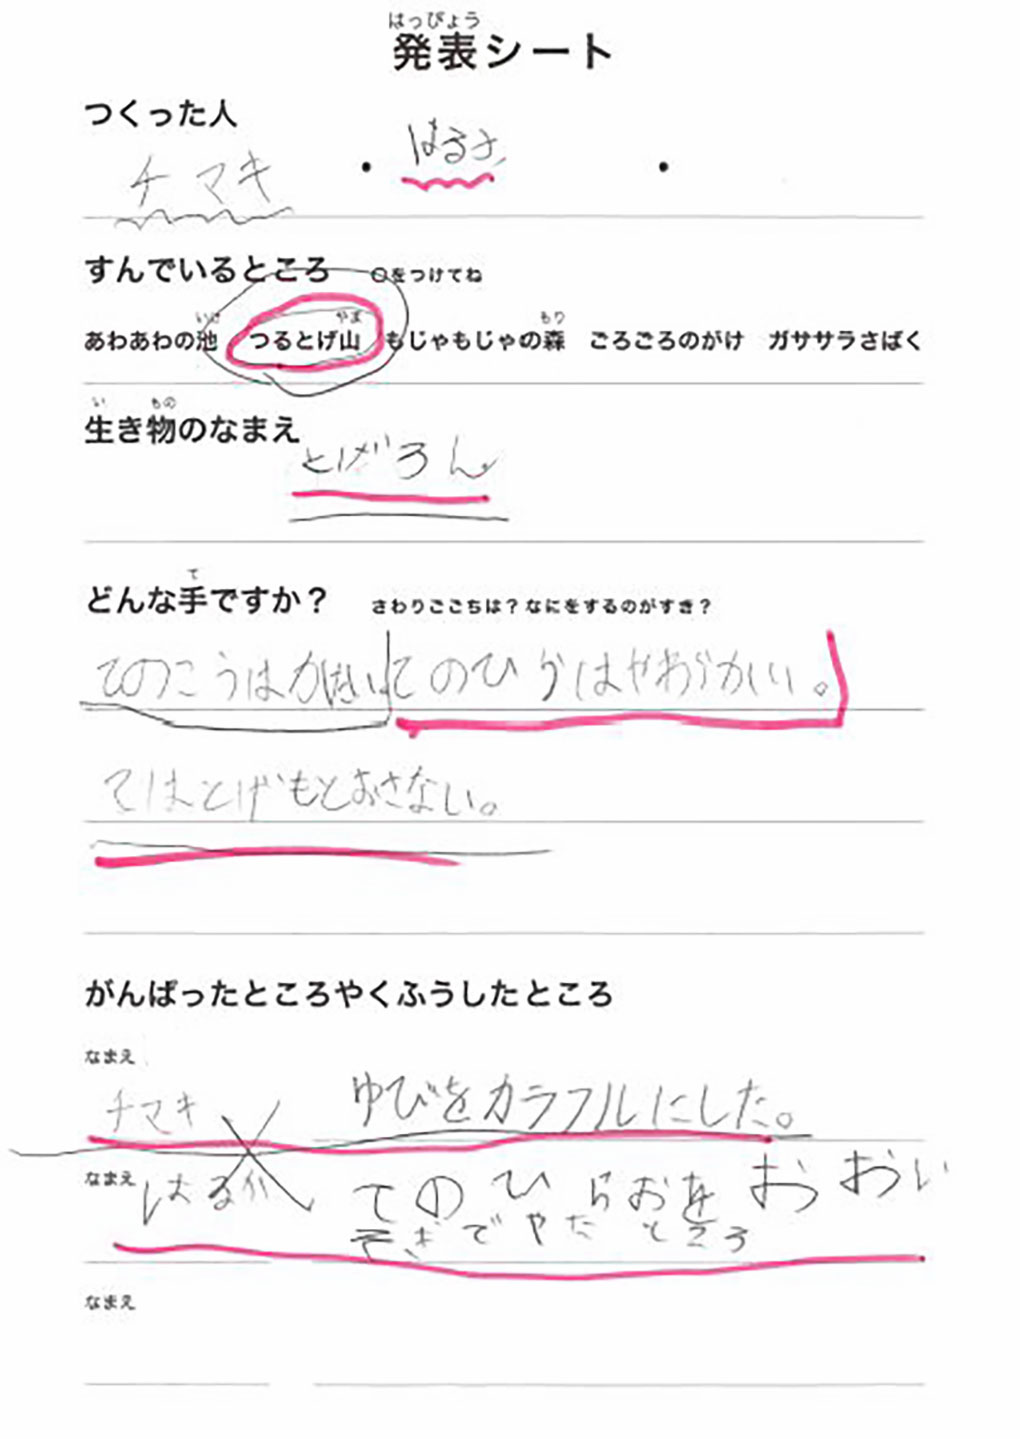 はっぴょう
発表シート
つくった人
チマキ ・ はるか ・
すんでいるところ ○をつけてね
いけ やま もり
あわあわの池 つるとげ山 もじゃもじゃの森 ごろごろのがけ ガササラさばく
い もの
生き物のなまえ
とげろん
て
どんな手ですか？ さわりごこちは？なにをするのがすき？
てのこうはかたい てのひらはやわらかい。
てはとげもとおさない。
がんばったところやくふうしたところ
なまえ
チマキ ゆびをカラフルにした。
なまえ
はるか てのひらおを おおい
でやたところ
なまえ